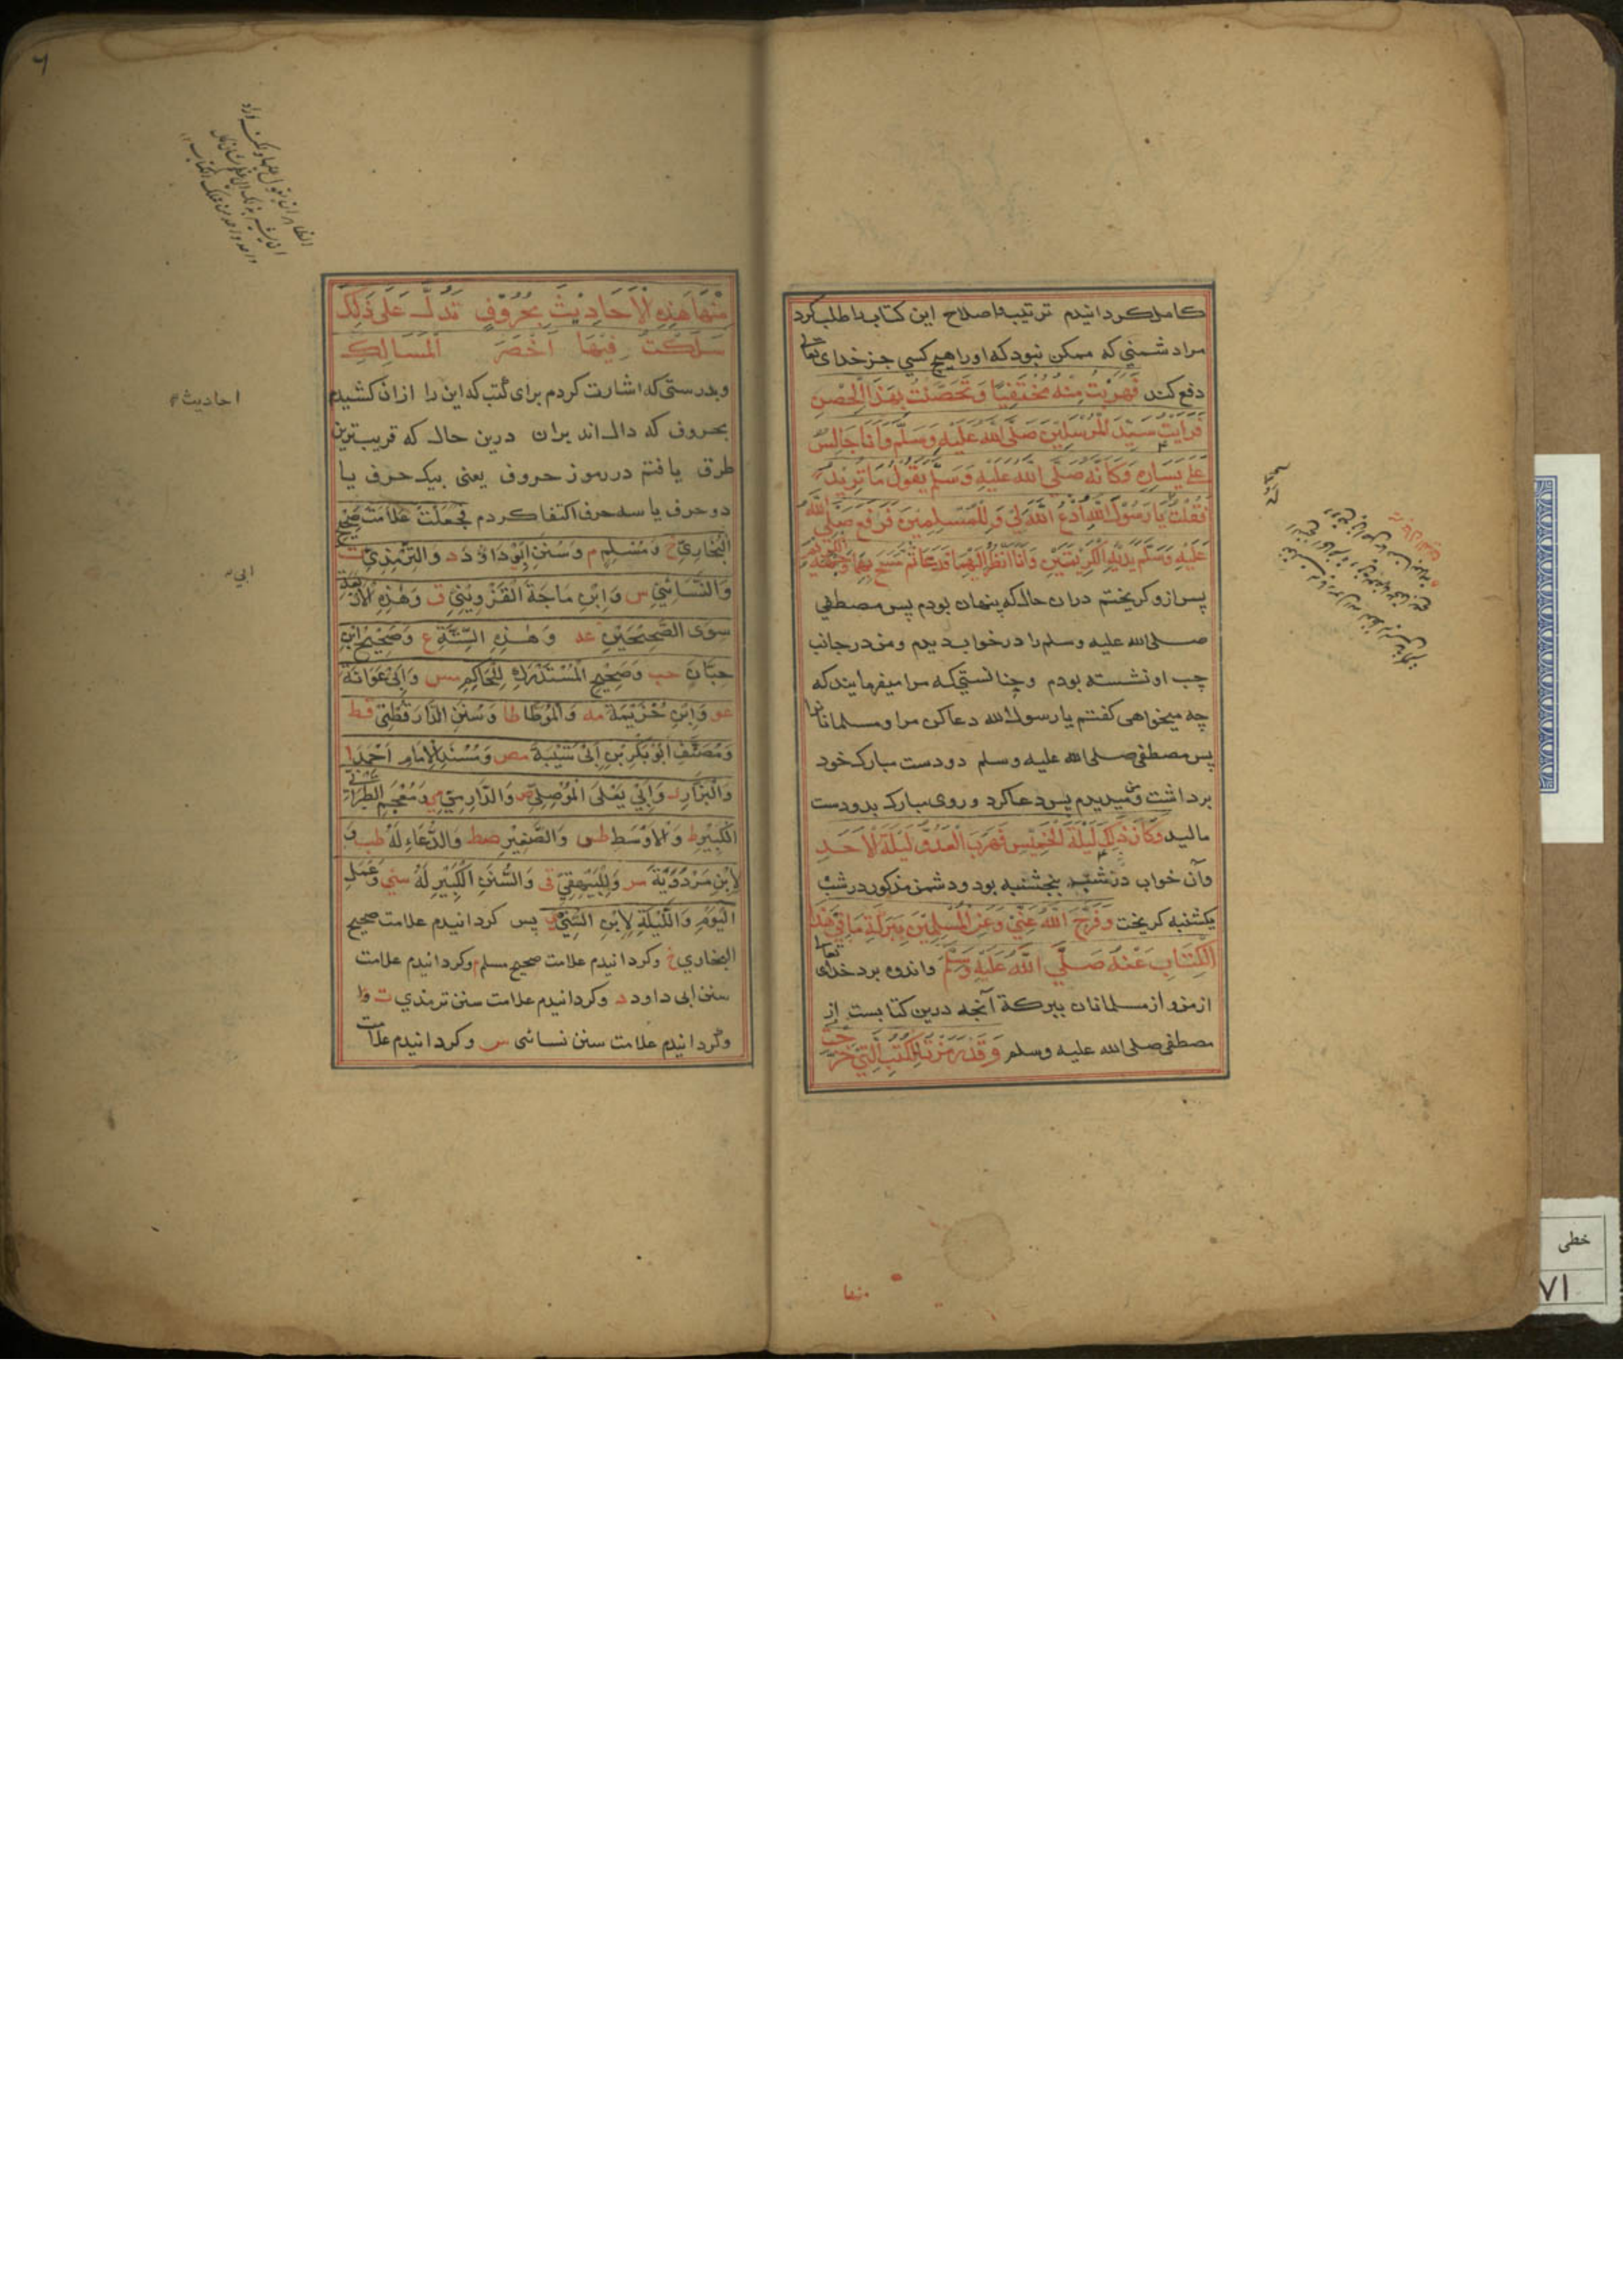 کامل کردانیدم ترتیب و اصلاح این کتاب را طلب کرد
مرا دشمنی که ممکن نبود که او را هیچ کسی جز خدای تعالی
دفع کند فَهَرَبْتُ مِنْهُ مُخْتَفِيًا وَتَحَصَّنْتُ بِهَذَا الْحِصْنِ
فَرَأَيْتُ سَيِّدَ الْمُرْسَلِينَ صَلَّى اللهُ عَلَيْهِ وَسَلَّمَ وَأَنَا جَالِسٌ
عَلَى يَسَارِهِ وَكَأَنَّهُ صَلَّى اللهُ عَلَيْهِ وَسَلَّمَ يَقُولُ مَا تُرِيدُ
فَقُلْتُ يَا رَسُولَ اللهِ أُدْعُ اللهَ لِي وَلِلْمُسْلِمِينَ فَرَفَعَ صَلَّى اللهُ
عَلَيْهِ وَسَلَّمَ يَدَيْهِ الْكَرِيمَتَيْنِ وَأَنَا أَنْظُرُ إِلَيْهِمَا فَدَعَا ثُمَّ مَسَحَ بِهِمَا وَجْهَهُ الْكَرِيمَ
پس ازو کریختم دران حال که پنهان بودم پس مصطفی
صلی الله علیه وسلم را در خواب دیدم و من در جانب
چب او نشسته بودم و چنانستی که مرا میفرمایند که
چه میخواهی کفتم یا رسول الله دعا کن مرا و مسلمانانرا
پس مصطفی صلی الله علیه وسلم دو دست مبارک خود
برداشت و من میدیدم پس دعا کرد و روی مبارک بدو دست
مالید وَكَانَ ذَلِكَ لَيْلَةَ الْخَمِيسِ فَهَرَبَ الْعَدُوُّ لَيْلَةَ الْأَحَدِ
و آن خواب در شب پنجشنبه بود و دشمن مذکور در شب
یکشنبه کریخت وَفَرَّجَ اللهُ عَنِّي وَعَنِ الْمُسْلِمِينَ بِبَرَكَةِ مَا فِي هَذَا
الْكِتَابِ عَنْهُ صَلَّى اللهُ عَلَيْهِ وَسَلَّمَ و اندوه برد خدای تعالی
از من و از مسلمانان ببرکة آنچه درین کتابست از
مصطفی صلی الله علیه وسلم وَقَدْ رَمَزْتُ لِلْكُتُبِ الَّتِي خَرَّجْتُ
مِنْهَا هَذِهِ الْأَحَادِيثَ بِحُرُوفٍ تَدُلُّ عَلَى ذَلِكَ
سَلَكْتُ فِيهَا أَخْصَرَ الْمَسَالِكِ
و بدرستی که اشارت کردم برای کتب که این را ازان کشیدم
بحروف که دال اند بران درین حال که قریب ترین
طرق یافتم در رموز حروف یعنی بیک حرف یا
دو حرف یا سه حرف اکتفا کردم فَجَعَلْتُ عَلَامَتَ صَحِيحِ
الْبُخَارِيِّ خ وَمُسْلِمٍ م وَسُنَنِ أَبِي دَاوُدَ د وَالتِّرْمِذِيِّ ت
وَالنَّسَائِيِّ س وَابْنِ مَاجَةَ الْقَزْوِينِيِّ ق وَهَذِهِ الْأَرْبَعَةِ
سِوَى الصَّحِيحَيْنِ عه وَهَذِهِ السِّتَّةِ ع وَصَحِيحِ ابْنِ
حِبَّانَ حب وَصَحِيحِ الْمُسْتَدْرَكِ لِلْحَاكِمِ مس وَأَبِي عَوَانَةَ
عو وَابْنِ خُزَيْمَةَ مه وَالْمُوَطَّا طا وَسُنَنِ الدَّارَقُطْنِيِّ قط
وَمُصَنَّفِ أَبُو بَكْرِ بْنِ أَبِي شَيْبَةَ مص وَمُسْنَدِ الْإِمَامِ أَحْمَدَ ا
وَالْبَزَّارِ ر وَأَبِي يَعْلَى الْمُوصِلِيِّ ص وَالدَّارِمِيِّ مي وَمُعْجَمِ الطَّبَرَانِيِّ
الْكَبِيرِ ط وَالْأَوْسَطِ طس وَالصَّغِيرِ صط وَالدُّعَاءِ لَهُ طب وَ
لِابْنِ مَرْدَوَيْهِ مر وَلِلْبَيْهَقِيِّ قي وَالسُّنَنِ الْكَبِيرِ لَهُ سني وَعَمَلِ
الْيَوْمِ وَاللَّيْلَةِ لِابْنِ السُّنِّيِّ ي پس کردانیدم علامت صحیح
البخاري خ و کردانیدم علامت صحیح مسلم م و کردانیدم علامت
سنن ابی داود د و کردانیدم علامت سنن ترمذي ت
و کردانیدم علامت سنن نسائی س و کردانیدم علامت
احادیث
ابی
خطی
۷۱